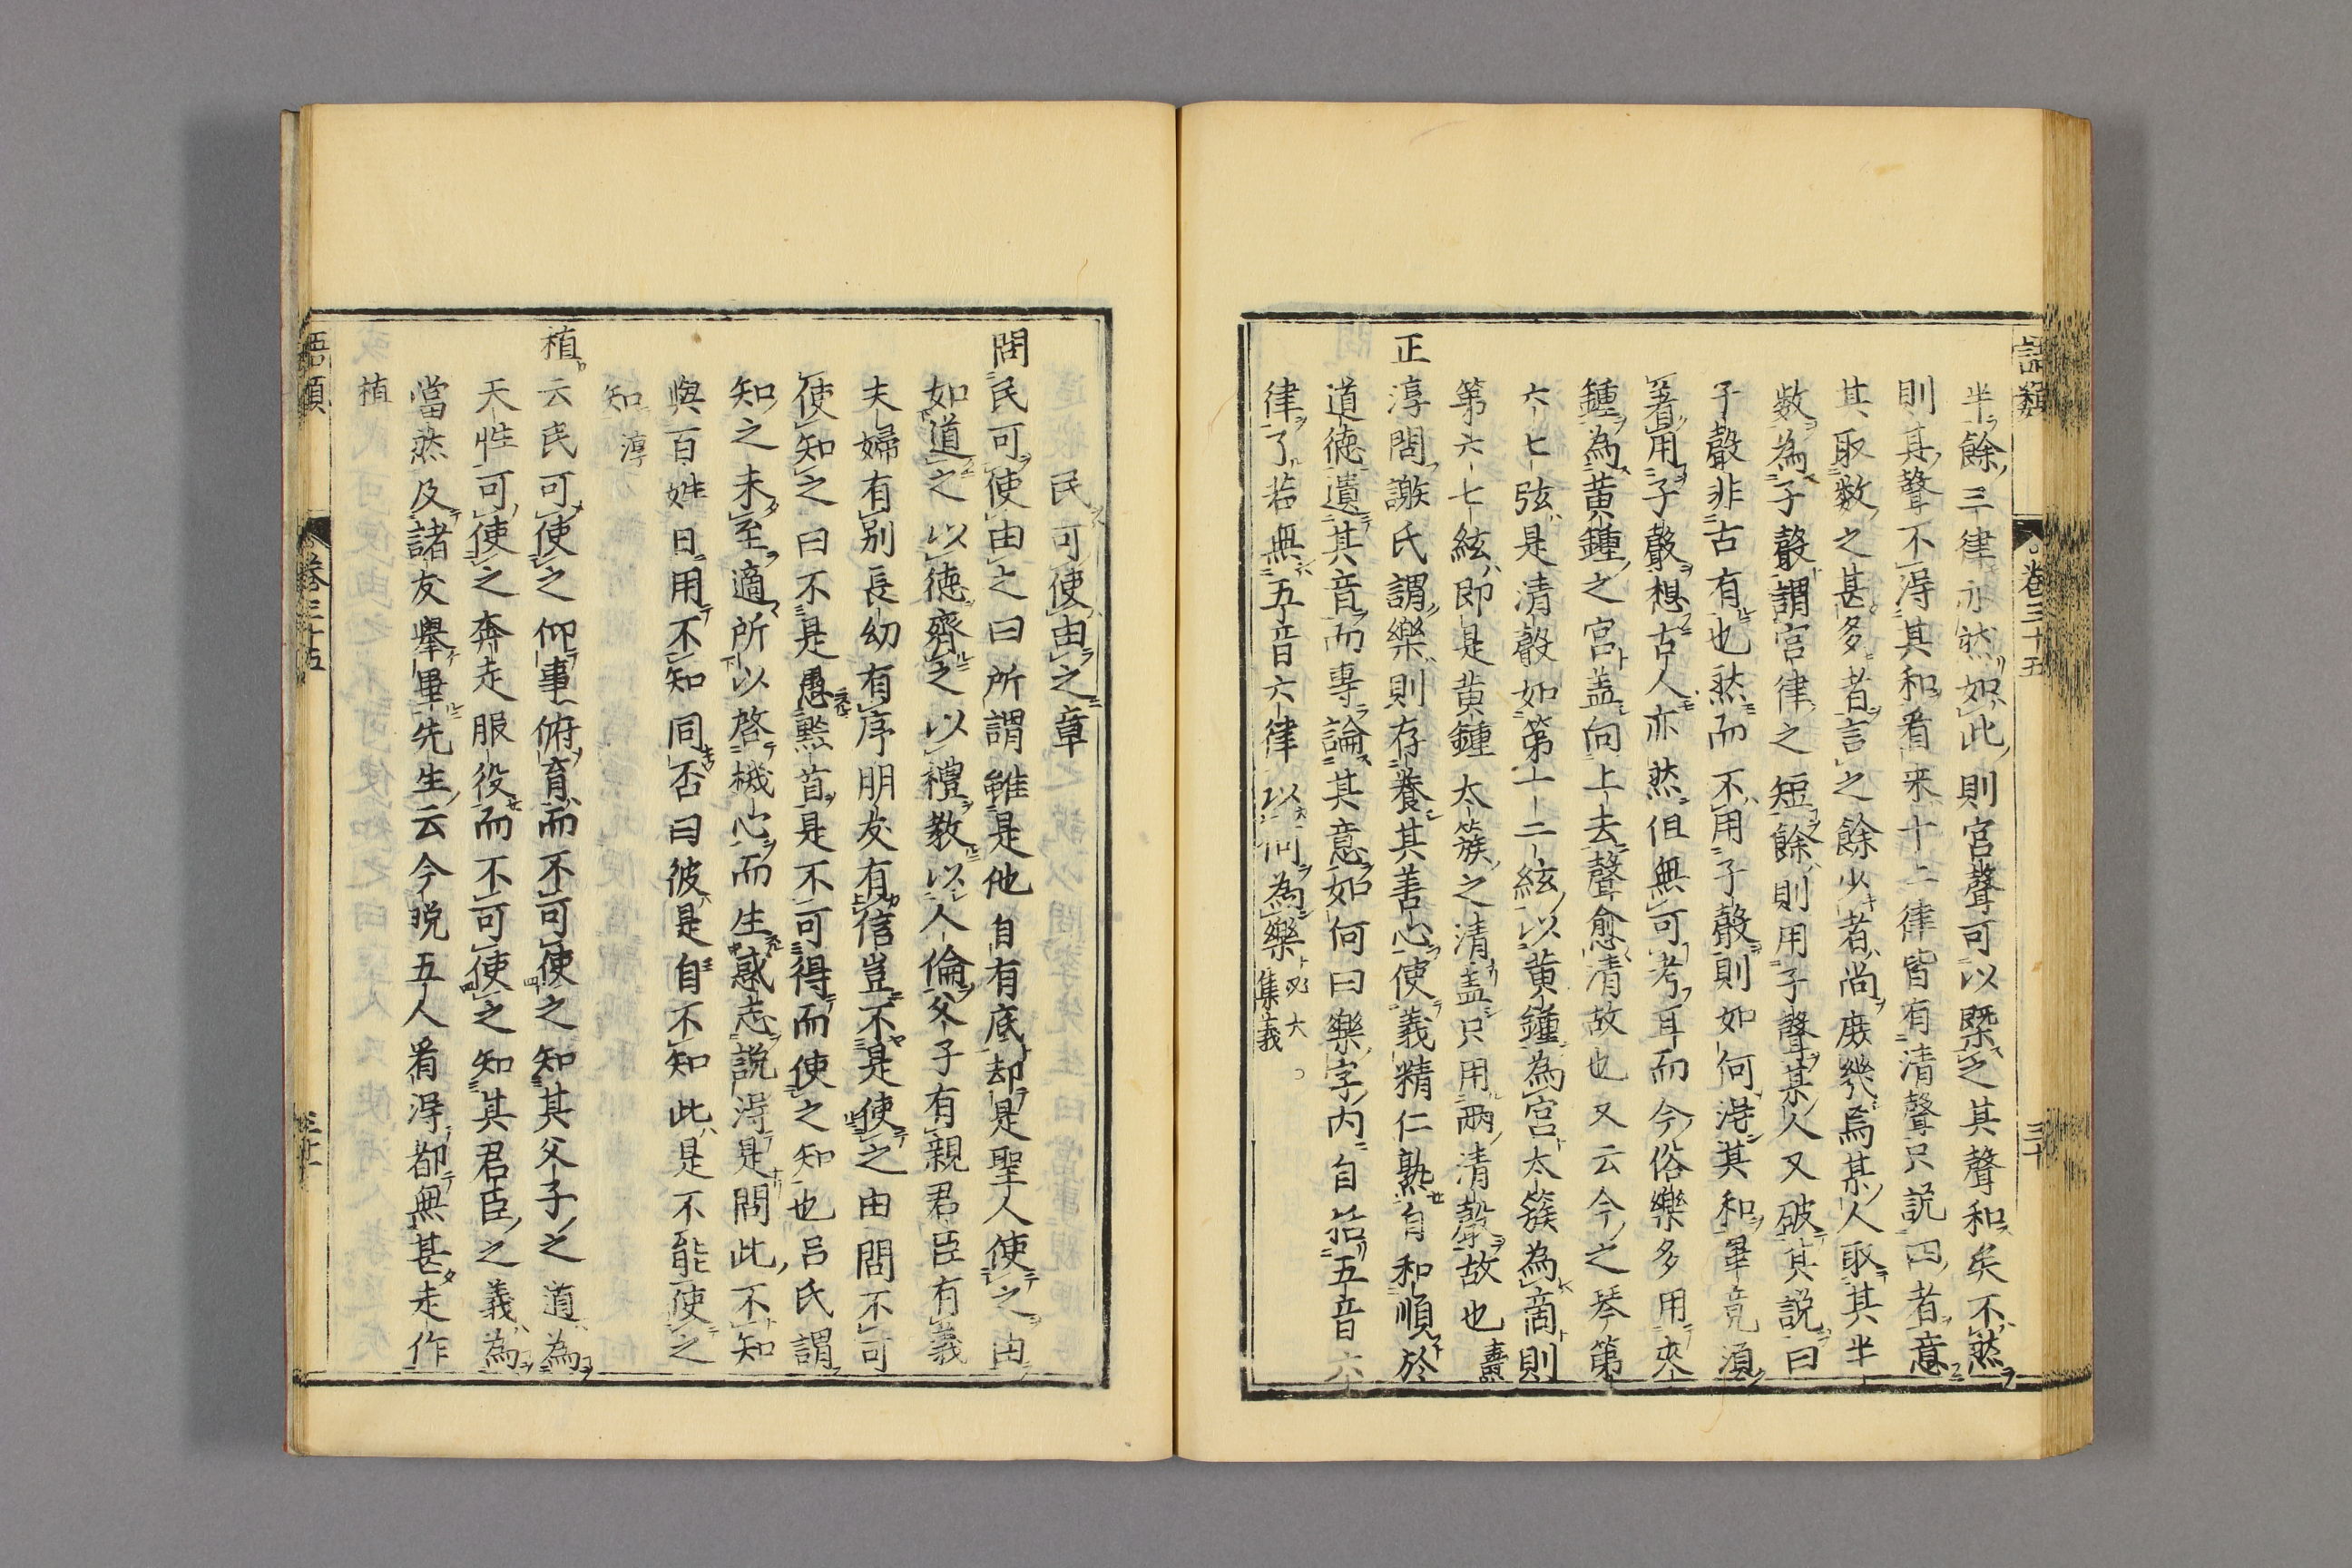 語類
卷三十五
三十
半餘三律亦然如此則宮聲可以槩之其聲和矣不然
則其聲不得其和看来十二律皆有清聲只説四者意
其取数之甚多者言之餘少者尚庶幾焉某人取其半
数為子聲謂宮律之短餘則用子聲某人又破其説曰
子聲非古有也然而不用子聲則如何得其和畢竟須
著用子聲想古人亦然但無可考耳而今俗樂多用夾
鍾為黄鍾之宮盖向上去聲愈清故也又云今之琴第
六七弦是清聲如第十二絃以黄鍾為宮太簇為商則
第六七絃即是黄鍾太簇之清盖只用兩清聲故也燾
正淳問謝氏謂樂則存養其善心使義精仁熟自和順於
道徳遺其音而專論其意如何曰樂字内自括五音六
律了若無五音六律以何為樂㽦大。集義
民可使由之章
問民可使由之曰所謂雖是他自有底却是聖人使之由
如道之以徳齊之以禮教以人倫父子有親君臣有義
夫婦有别長幼有序朋友有信豈不是使之由問不可
使知之曰不是愚黔首是不可得而使之知也吕氏謂
知之未至適所以啓機心而生惑志説得是問此不知
與百姓日用不知同否曰彼是自不知此是不能使之
知淳
植云民可使之仰事俯育而不可使之知其父子之道為
天性可使之奔走服役而不可使之知其君臣之義為
當然及諸友舉畢先生云今晩五人看得都無甚走作
植
語類
卷三十五
三十一